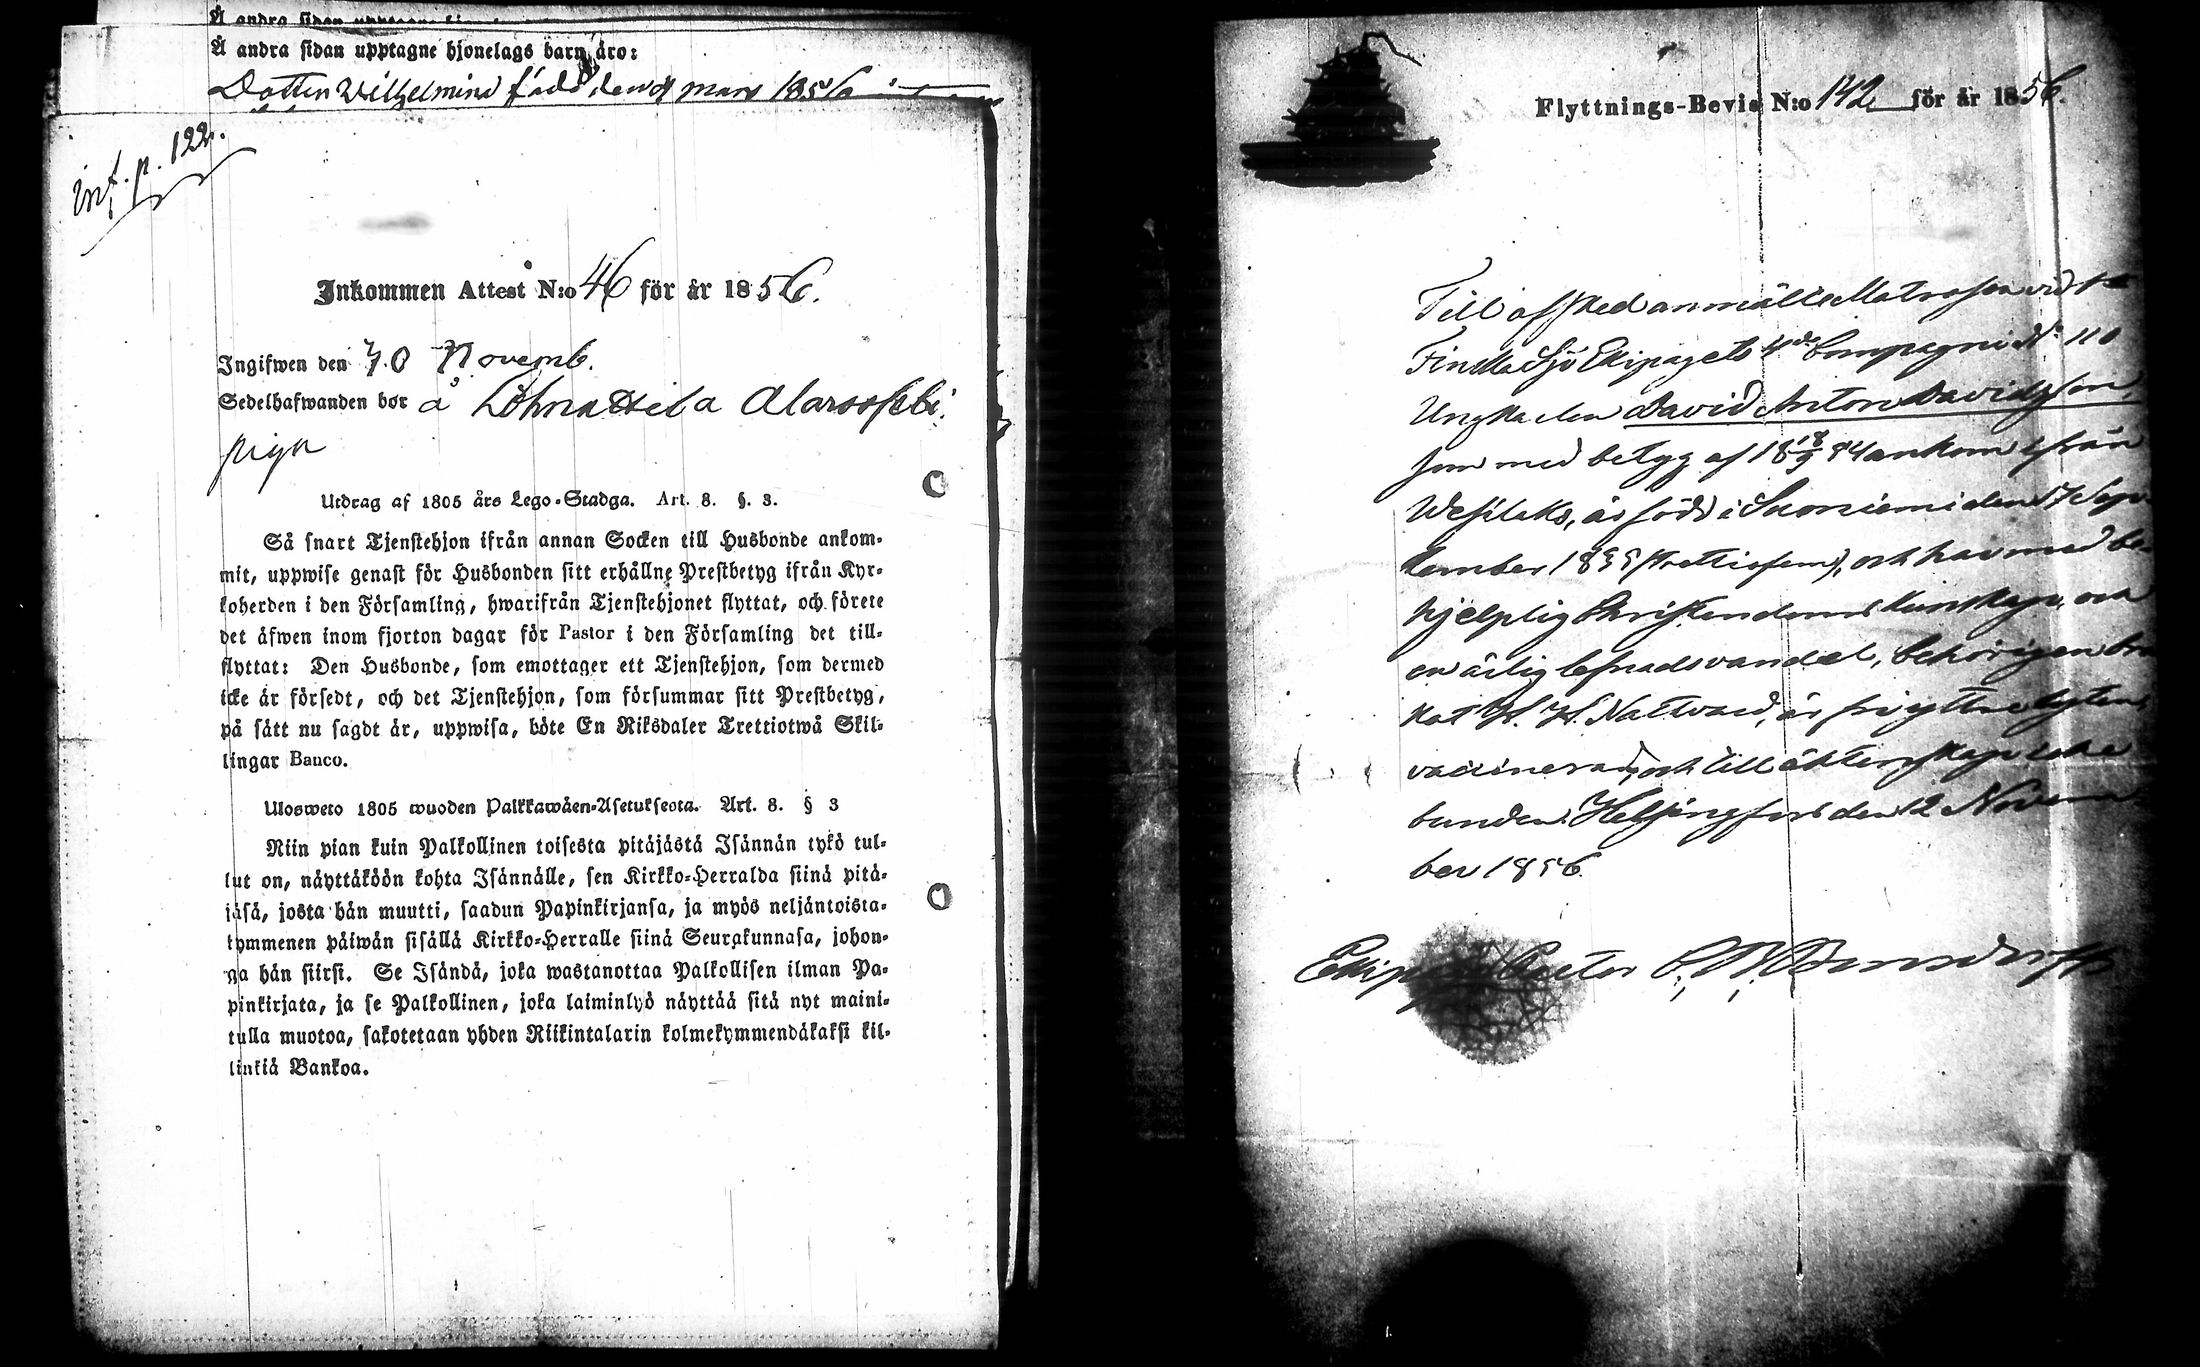 Å andra sidan upptagne hjonelags barn äro:
Dotter Wilhelmina född den 9 mars 1856
inf. p. 122.
Inkommen Attest N:o 46 för år 1856.
Ingifwen den 30 Novemb.
Sedelhafwanden bor å Löhnattila Alarossebi
piga
Utdrag af 1805 års Lego-Stadga. Art. 8. §. 3.
Så snart Tjenstehjon ifrån annan Socken till Husbonde ankom-
mit, uppwise genast för Husbonden sitt erhållne Prestbetyg ifrån Kyr-
koherden i den Församling, hwarifrån Tjenstehjonet flyttat, och förete
det äfwen inom fjorton dagar för Pastor i den Församling det till-
flyttat: Den Husbonde, som emottager ett Tjenstehjon, som dermed
icke är försedt, och det Tjenstehjon, som försummar sitt Prestbetyg,
på sätt nu sagdt är, uppwisa, böte En Riksdaler Trettiotwå Skil-
lingar Banco.
Ulosweto 1805 wuoden Palkkawäen-Asetuksesta. Art. 8. § 3
Niin pian kuin Palkollinen toisesta pitäjästä Isännän tykö tul-
lut on, näyttäköön kohta Isännälle, sen Kirkko-Herralda siinä pitä-
jäsä, josta hän muutti, saadun Papinkirjansa, ja myös neljäntoista-
kymmenen päiwän sisällä Kirkko-Herralle siinä Seurakunnasa, johon-
ga hän siirsi. Se Isändä, joka wastanottaa Palkollisen ilman Pa-
pinkirjata, ja se Palkollinen, joka laiminlyö näyttää sitä nyt maini-
tulla muotoa, sakotetaan yhden Riikintalarin kolmekymmendäkaksi kil-
linkiä Bankoa.
Flyttnings-Bevis N:o 142 för år 1856.
Till afsked anmälte Matrosen vid
Finska Sjö Ekipagets 4de Compagni N:o 110
Ungkarlen David Anton Davidsson,
som med betyg af 18 18/9 54 ankom ifrån
Wesilaks, är född i Suoniemi den 7 Sep-
tember 1835 (trettiofem), och har med be-
hjelplig Christendoms kunskap, och
en ärlig lefnadsvandel, behörigen bru
kat H. H. Nattvard, är fri ytterlysten,
vaccinerad, och till äktenskap icke
bunden. Helsingfors den 12 Novem
ber 1856.
Ekipage Pastor